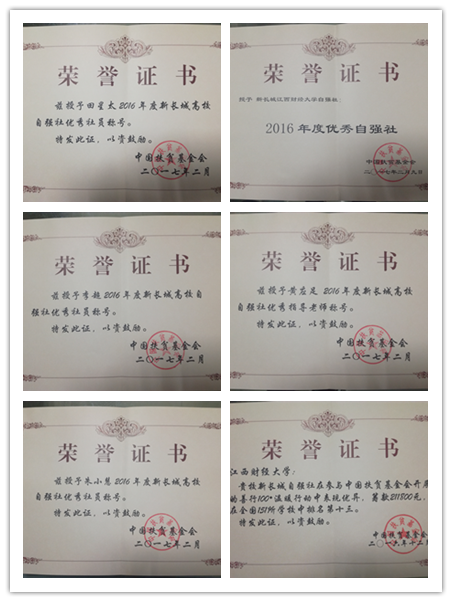 荣誉证书
兹授予田星太2016年度新长城高校
自强社优秀社员称号。
特发此证，以资鼓励。
中国扶贫基金会
二〇一七年二月
荣誉证书
授予 新长城江西财经大学自强社：
2016年度优秀自强社
中国扶贫基金会
二〇一七年二月九日
荣誉证书
兹授予李超2016年度新长城高校自
强社优秀社员称号。
特发此证，以资鼓励。
中国扶贫基金会
二〇一七年二月
荣誉证书
兹授予黄应足2016年度新长城高校
自强社优秀指导老师称号。
特发此证，以资鼓励。
中国扶贫基金会
二〇一七年二月
荣誉证书
兹授予朱小慧2016年度新长城高校
自强社优秀社员称号。
特发此证，以资鼓励。
中国扶贫基金会
二〇一七年二月
江西财经大学：
贵校新长城自强社在参与中国扶贫基金会开展
的善行100·温暖行动中表现优异，筹款211800元，
在全国151所学校中排名第十三。
特发此证，以资鼓励。
中国扶贫基金会
二〇一六年十二月